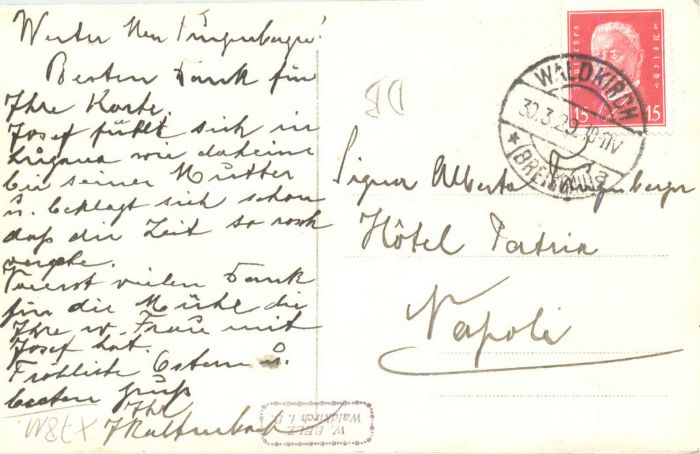 Werter Herr Jungenberger!
Besten Dank für
Ihre Karte.
Josef fühlt sich in
Lugano wie daheim
bei seiner Mutter
u. beklagt sich schon
daß die Zeit so rasch
vergehe.
vielen Dank
für die Mühe die
Ihre w. Frau mit
Josef hat.
Fröhliche Ostern u.
besten Gruß
Ihr
X78M.
DB
Deutsches Reich
15 15
WALDKIRCH
30.3.29. 10-11V
* (BREISGAU) a
Signor Alberto Jungenberger
Hôtel Patria
Napoli
W. BELZ
Waldkirch i. B.